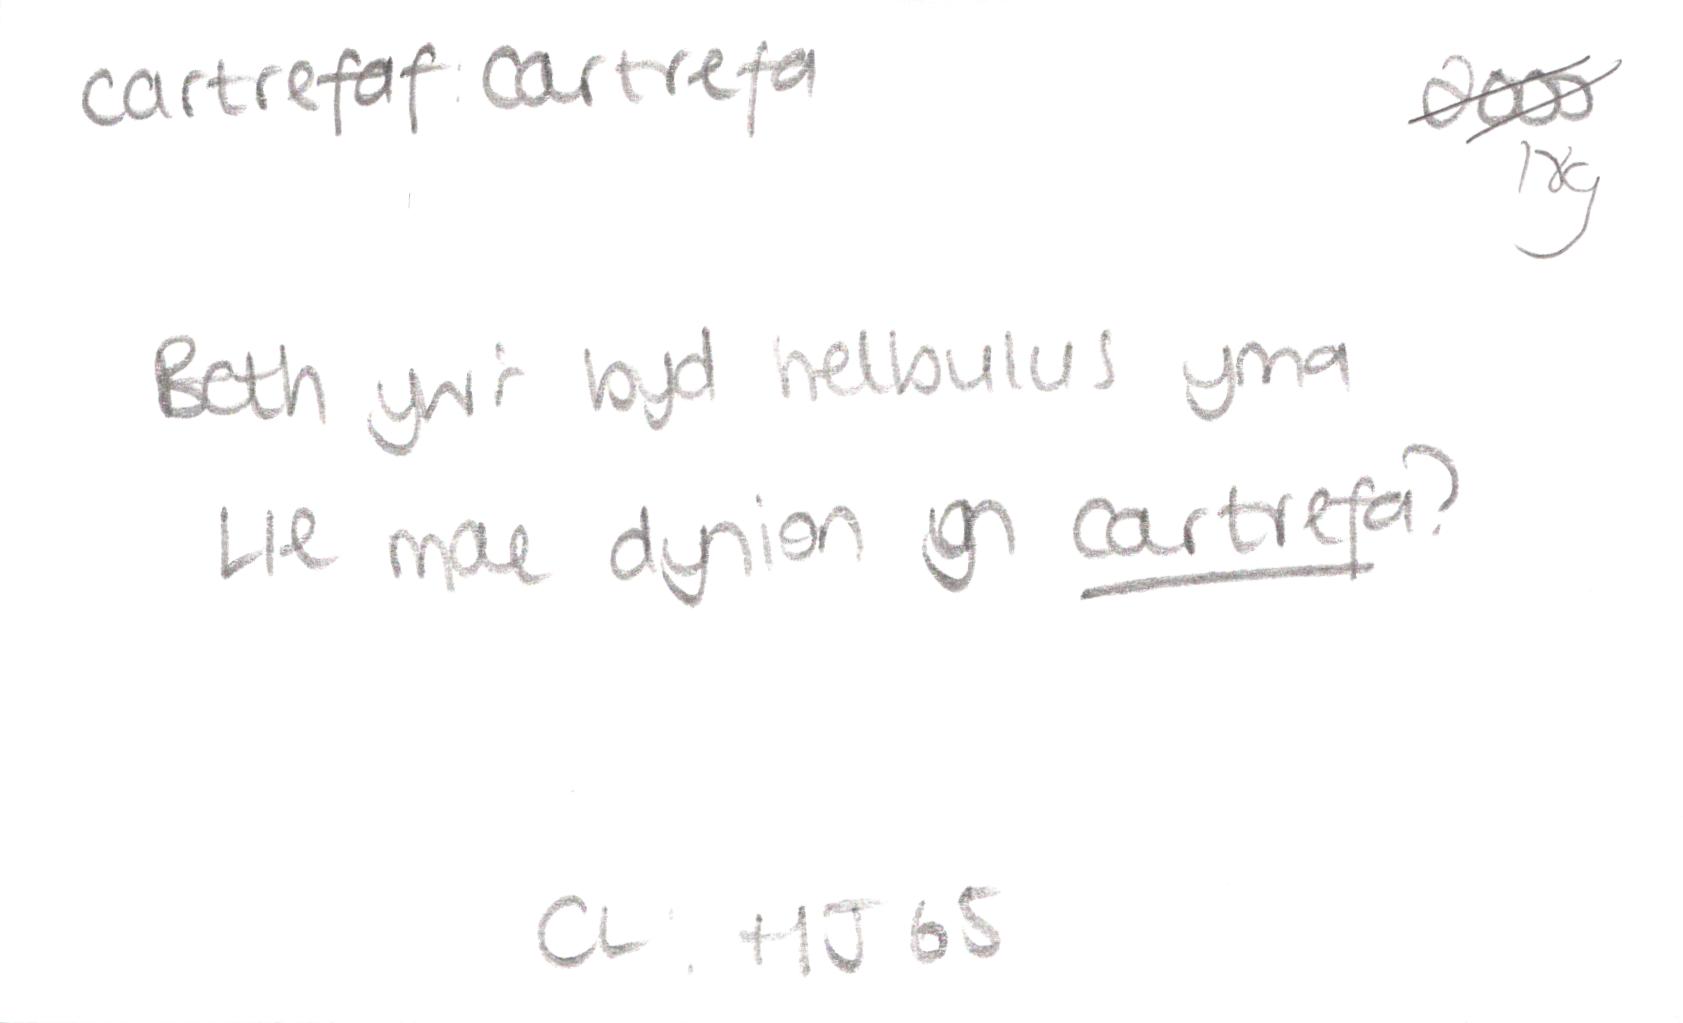 cartrefaf: cartrefa
2000
18g
Beth yw'r byd helbulus yma
Lle mae dynion yn cartrefa?
CL: HJ 65